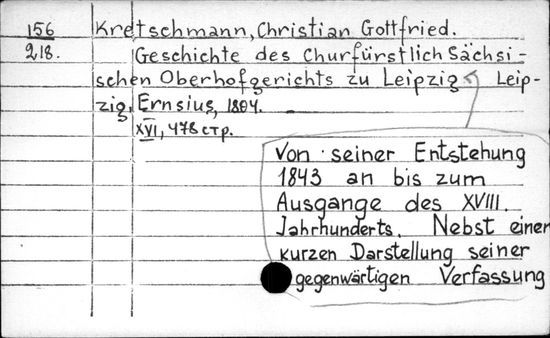 156 Kretschmann, Christian Gottfried.
218. Geschichte des Churfürstlich Sächsi-
schen Oberhofgerichts zu Leipzig Leip-
zig, Ernsius, 1804.
XVI, 478 стр.
Von seiner Entstehung
1843 an bis zum
Ausgange des XVIII.
Jahrhunderts. Nebst einer
kurzen Darstellung seiner
gegenwärtigen Verfassung